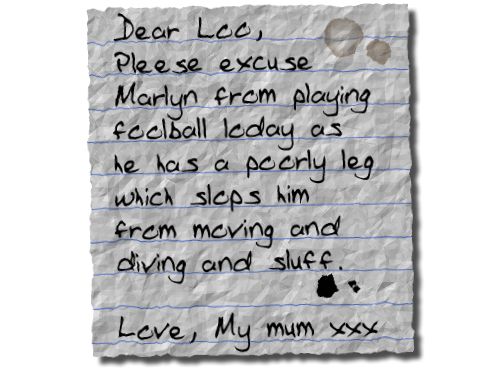 Dear Loo,
Pleese excuse
Martyn from playing
football today as
he has a poorly leg
which stops him
from moving and
diving and stuff.
Love, My mum xxx